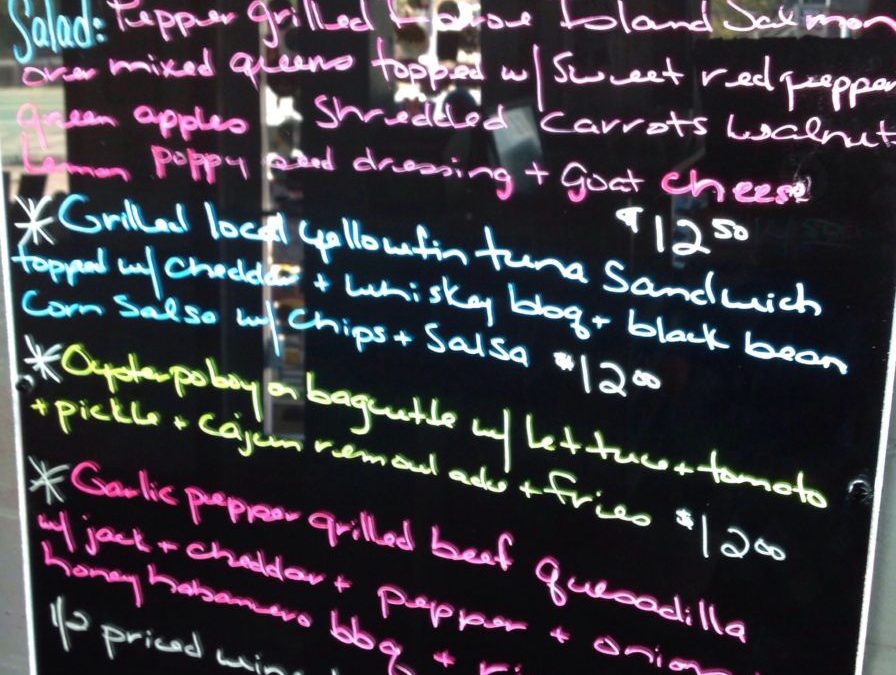 Salad: Pepper grilled Faroe Island Salmon
over mixed greens topped w/ Sweet red pepper
green apples Shredded Carrots walnut
Lemon poppy seed dressing + goat cheese
$12 50
* Grilled local yellowfin tuna Sandwich
topped w/ cheddar + whiskey bbq + black bean
Corn Salsa w/ Chips + Salsa $12 00
* Oyster poboy on baguette w/ lettuce + tomato
+ pickle + cajun remoulade + fries $12 00
* Garlic pepper grilled beef quesadilla
w/ jack + cheddar + pepper + onion
honey habanero bbq +
1/2 priced wine